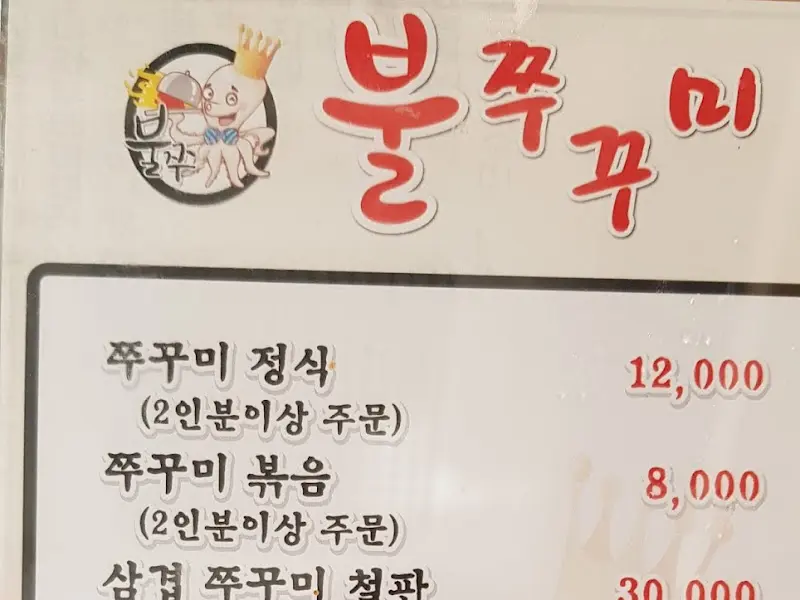 불쭈
불쭈꾸미
쭈꾸미 정식 12,000
(2인분이상 주문)
쭈꾸미 볶음 8,000
(2인분이상 주문)
삼겹 쭈꾸미 철판 30,000